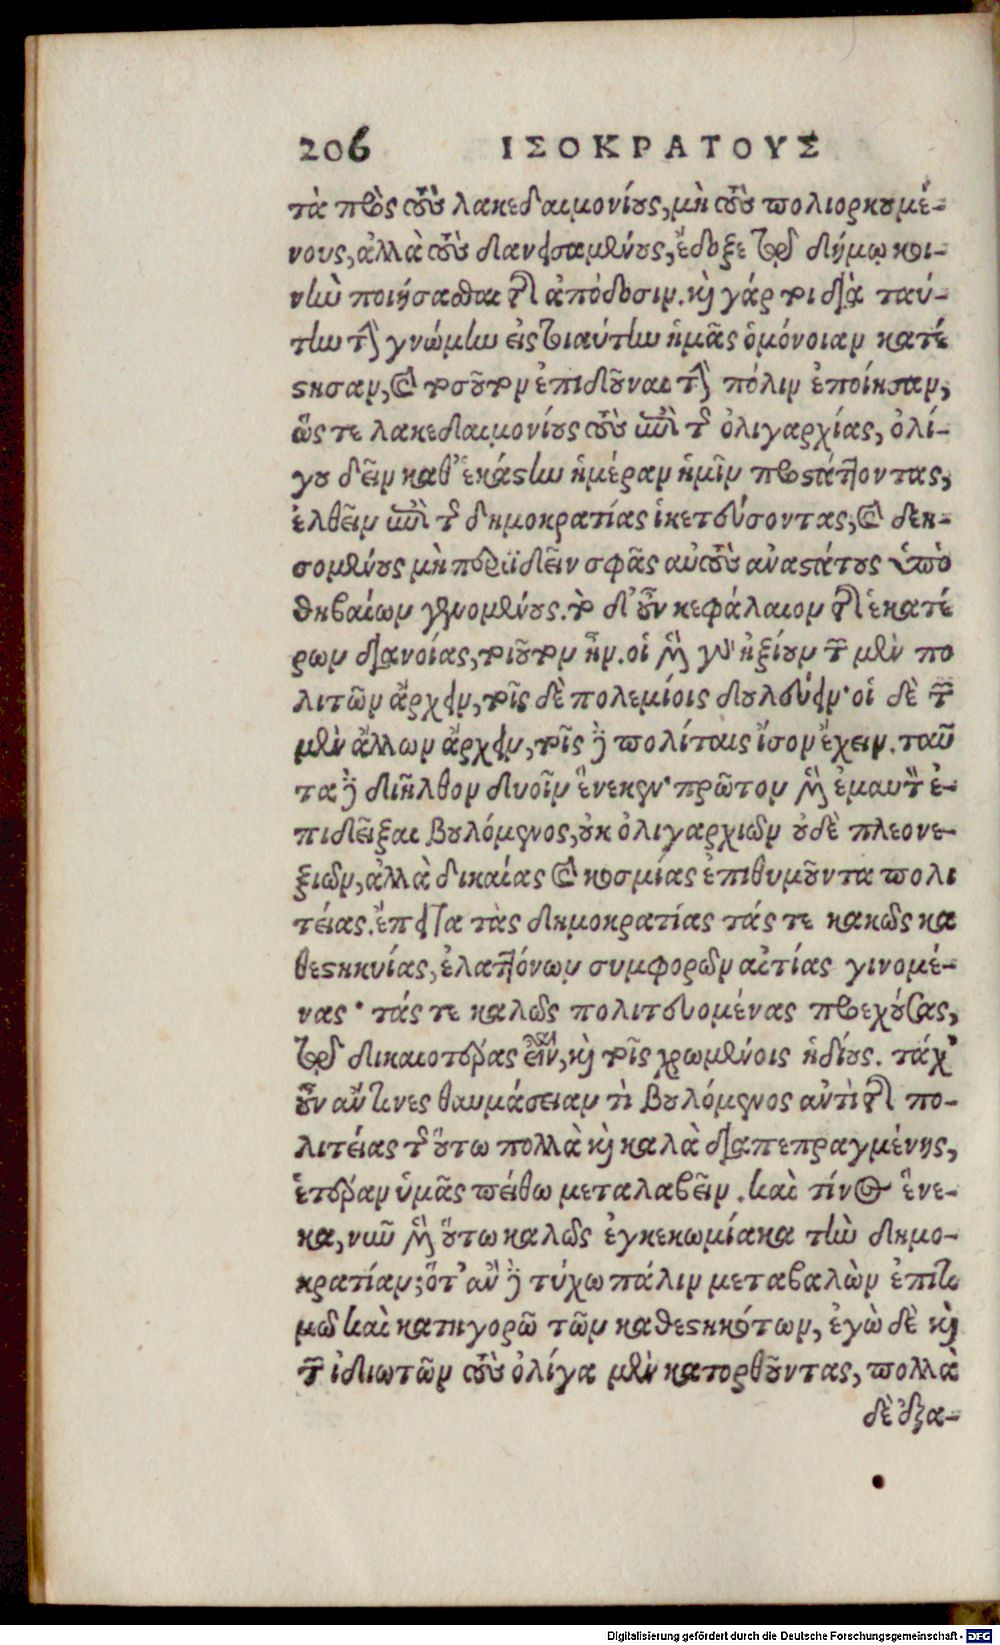 206 ΙΣΟΚΡΑΤΟΥΣ
τὰ πρὸς τοὺς λακεδαιμονίους, μὴ τοὺς πολιορκουμέ-
νους, ἀλλὰ τοὺς δανεισαμένους, ἔδοξε τῷ δήμῳ κοι-
νὴν ποιήσασθαι τὴν ἀπόδοσιν. καὶ γάρ τοι διὰ ταύ-
την τὴν γνώμην εἰς τοιαύτην ἡμᾶς ὁμόνοιαν κατέ
στησαν, καὶ τοσοῦτον ἐπιδοῦναι τὴν πόλιν ἐποίησαν,
ὥστε λακεδαιμονίους τοὺς ἐπὶ τῆς ὀλιγαρχίας, ὀλί-
γου δεῖν καθ' ἑκάστην ἡμέραν ἡμῖν προστάττοντας,
ἐλθεῖν ἐπὶ τῆς δημοκρατίας ἱκετεύσοντας, καὶ δεη-
σομένους μὴ περιϊδεῖν σφᾶς αὐτοὺς ἀναστάτους ὑπὸ
θηβαίων γενομένους. τὸ δ' οὖν κεφάλαιον τῆς ἑκατέ
ρων διανοίας, τοιοῦτον ἦν. οἱ μὲν γὰρ ἠξίουν τῶν μὲν πο
λιτῶν ἄρχειν, τοῖς δὲ πολεμίοις δουλεύειν· οἱ δὲ τῶν
μὲν ἄλλων ἄρχειν, τοῖς δὲ πολίταις ἴσον ἔχειν. ταῦ
τα δὲ διῆλθον δυοῖν ἕνεκεν· πρῶτον μὲν ἐμαυτὸν ἐ-
πιδεῖξαι βουλόμενος, οὐκ ὀλιγαρχιῶν οὐδὲ πλεονε-
ξιῶν, ἀλλὰ δικαίας καὶ κοσμίας ἐπιθυμοῦντα πολι
τείας. ἔπειτα τὰς δημοκρατίας τάς τε κακῶς κα
θεστηκυίας, ἐλαττόνων συμφορῶν αἰτίας γινομέ-
νας· τάς τε καλῶς πολιτευομένας προεχούσας,
τῷ δικαιοτέρας εἶναι, καὶ τοῖς χρωμένοις ἡδίους. τάχ'
οὖν ἄν τινες θαυμάσειαν τί βουλόμενος ἀντὶ τῆς πο-
λιτείας τῆς οὕτω πολλὰ καὶ καλὰ διαπεπραγμένης,
ἑτέραν ὑμᾶς πείθω μεταλαβεῖν. καὶ τίνος ἕνε-
κα, νῦν μὲν οὕτω καλῶς ἐγκεκωμίακα τὴν δημο-
κρατίαν; ὅτ' ἂν δὲ τύχω πάλιν μεταβαλὼν ἐπιτι
μῶ καὶ κατηγορῶ τῶν καθεστηκότων, ἐγὼ δὲ καὶ
τῶν ἰδιωτῶν τοὺς ὀλίγα μὲν κατορθοῦντας, πολλὰ
δὲ ἐξα-
Digitalisierung gefördert durch die Deutsche Forschungsgemeinschaft - DFG